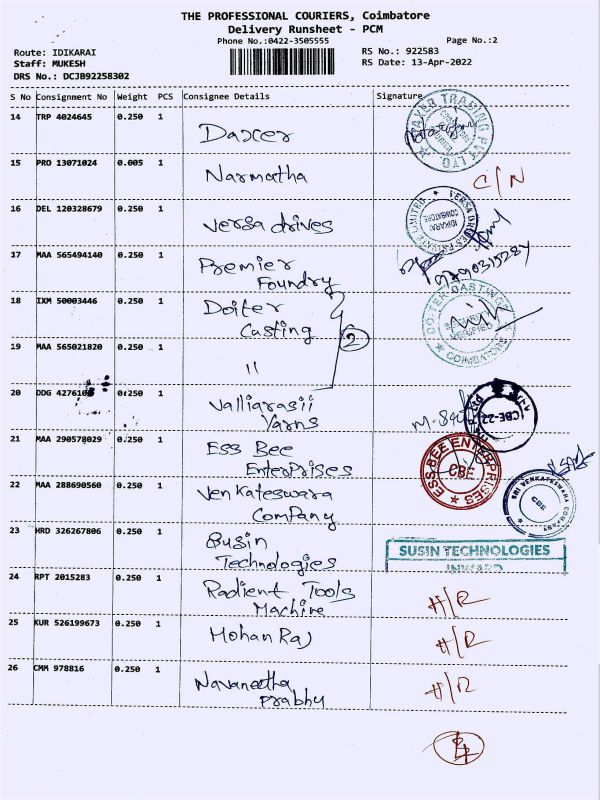 THE PROFESSIONAL COURIERS, Coimbatore
Delivery Runsheet - PCM
Phone No.:0422-3505555
Page No.:2
Route: IDIKARAI
RS No.: 922583
Staff: MUKESH
RS Date: 13-Apr-2022
DRS No.: DCJB92258302
S No Consignment No Weight PCS Consignee Details Signature
14 TRP 4024645 0.250 1 Daxcer
TRADING PVT LTD
15 PRO 13071024 0.005 1 Narmatha C/N
16 DEL 120328679 0.250 1 versa drives
VERSA DRIVES PRIVATE LIMITED
IDIKARAI
COIMBATORE
17 MAA 565494140 0.250 1 Premier
Foundry
9790315284
18 IXM 50003446 0.250 1 Doiter
Casting
2
DOITER CASTINGS
COIMBATORE
19 MAA 565021820 0.250 1 "
20 DDG 4276 0.250 1 Valliarasii
Yarns
CBE-22
21 MAA 290578029 0.250 1 Ess Bee
Enterprises
ESS BEE ENTERPRISES
CBE
22 MAA 288690560 0.250 1 Venkateswara
Company
SRI VENKATESWARA COMPANY
CBE
23 HRD 326267806 0.250 1 Susin
Technologies
SUSIN TECHNOLOGIES
INWARD
24 RPT 2015283 0.250 1 Radient Tools
Machine
H/R
25 KUR 526199673 0.250 1 Mohan Raj H/R
26 CMM 978816 0.250 1 Navaneetha
Prabhu
H/R